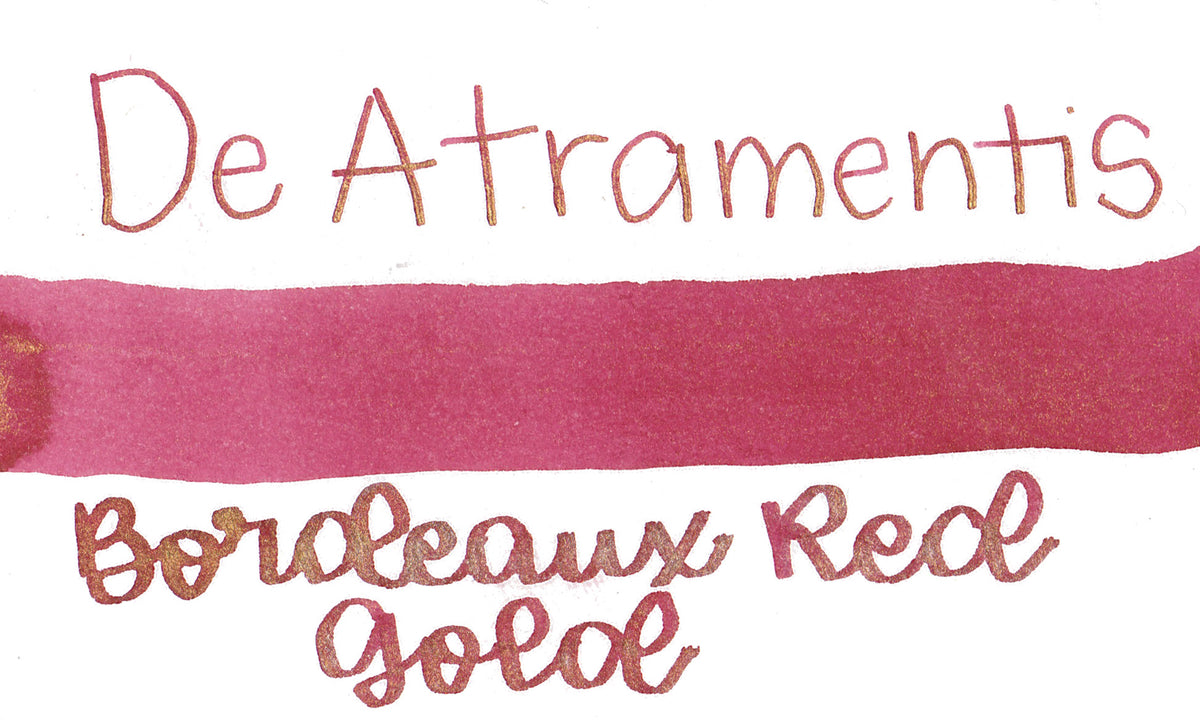 De Atramentis
Bordeaux Red
Gold